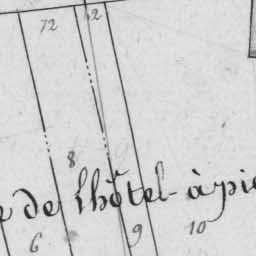 72 2
8
de l'hôtel-à-pie
6 9 10